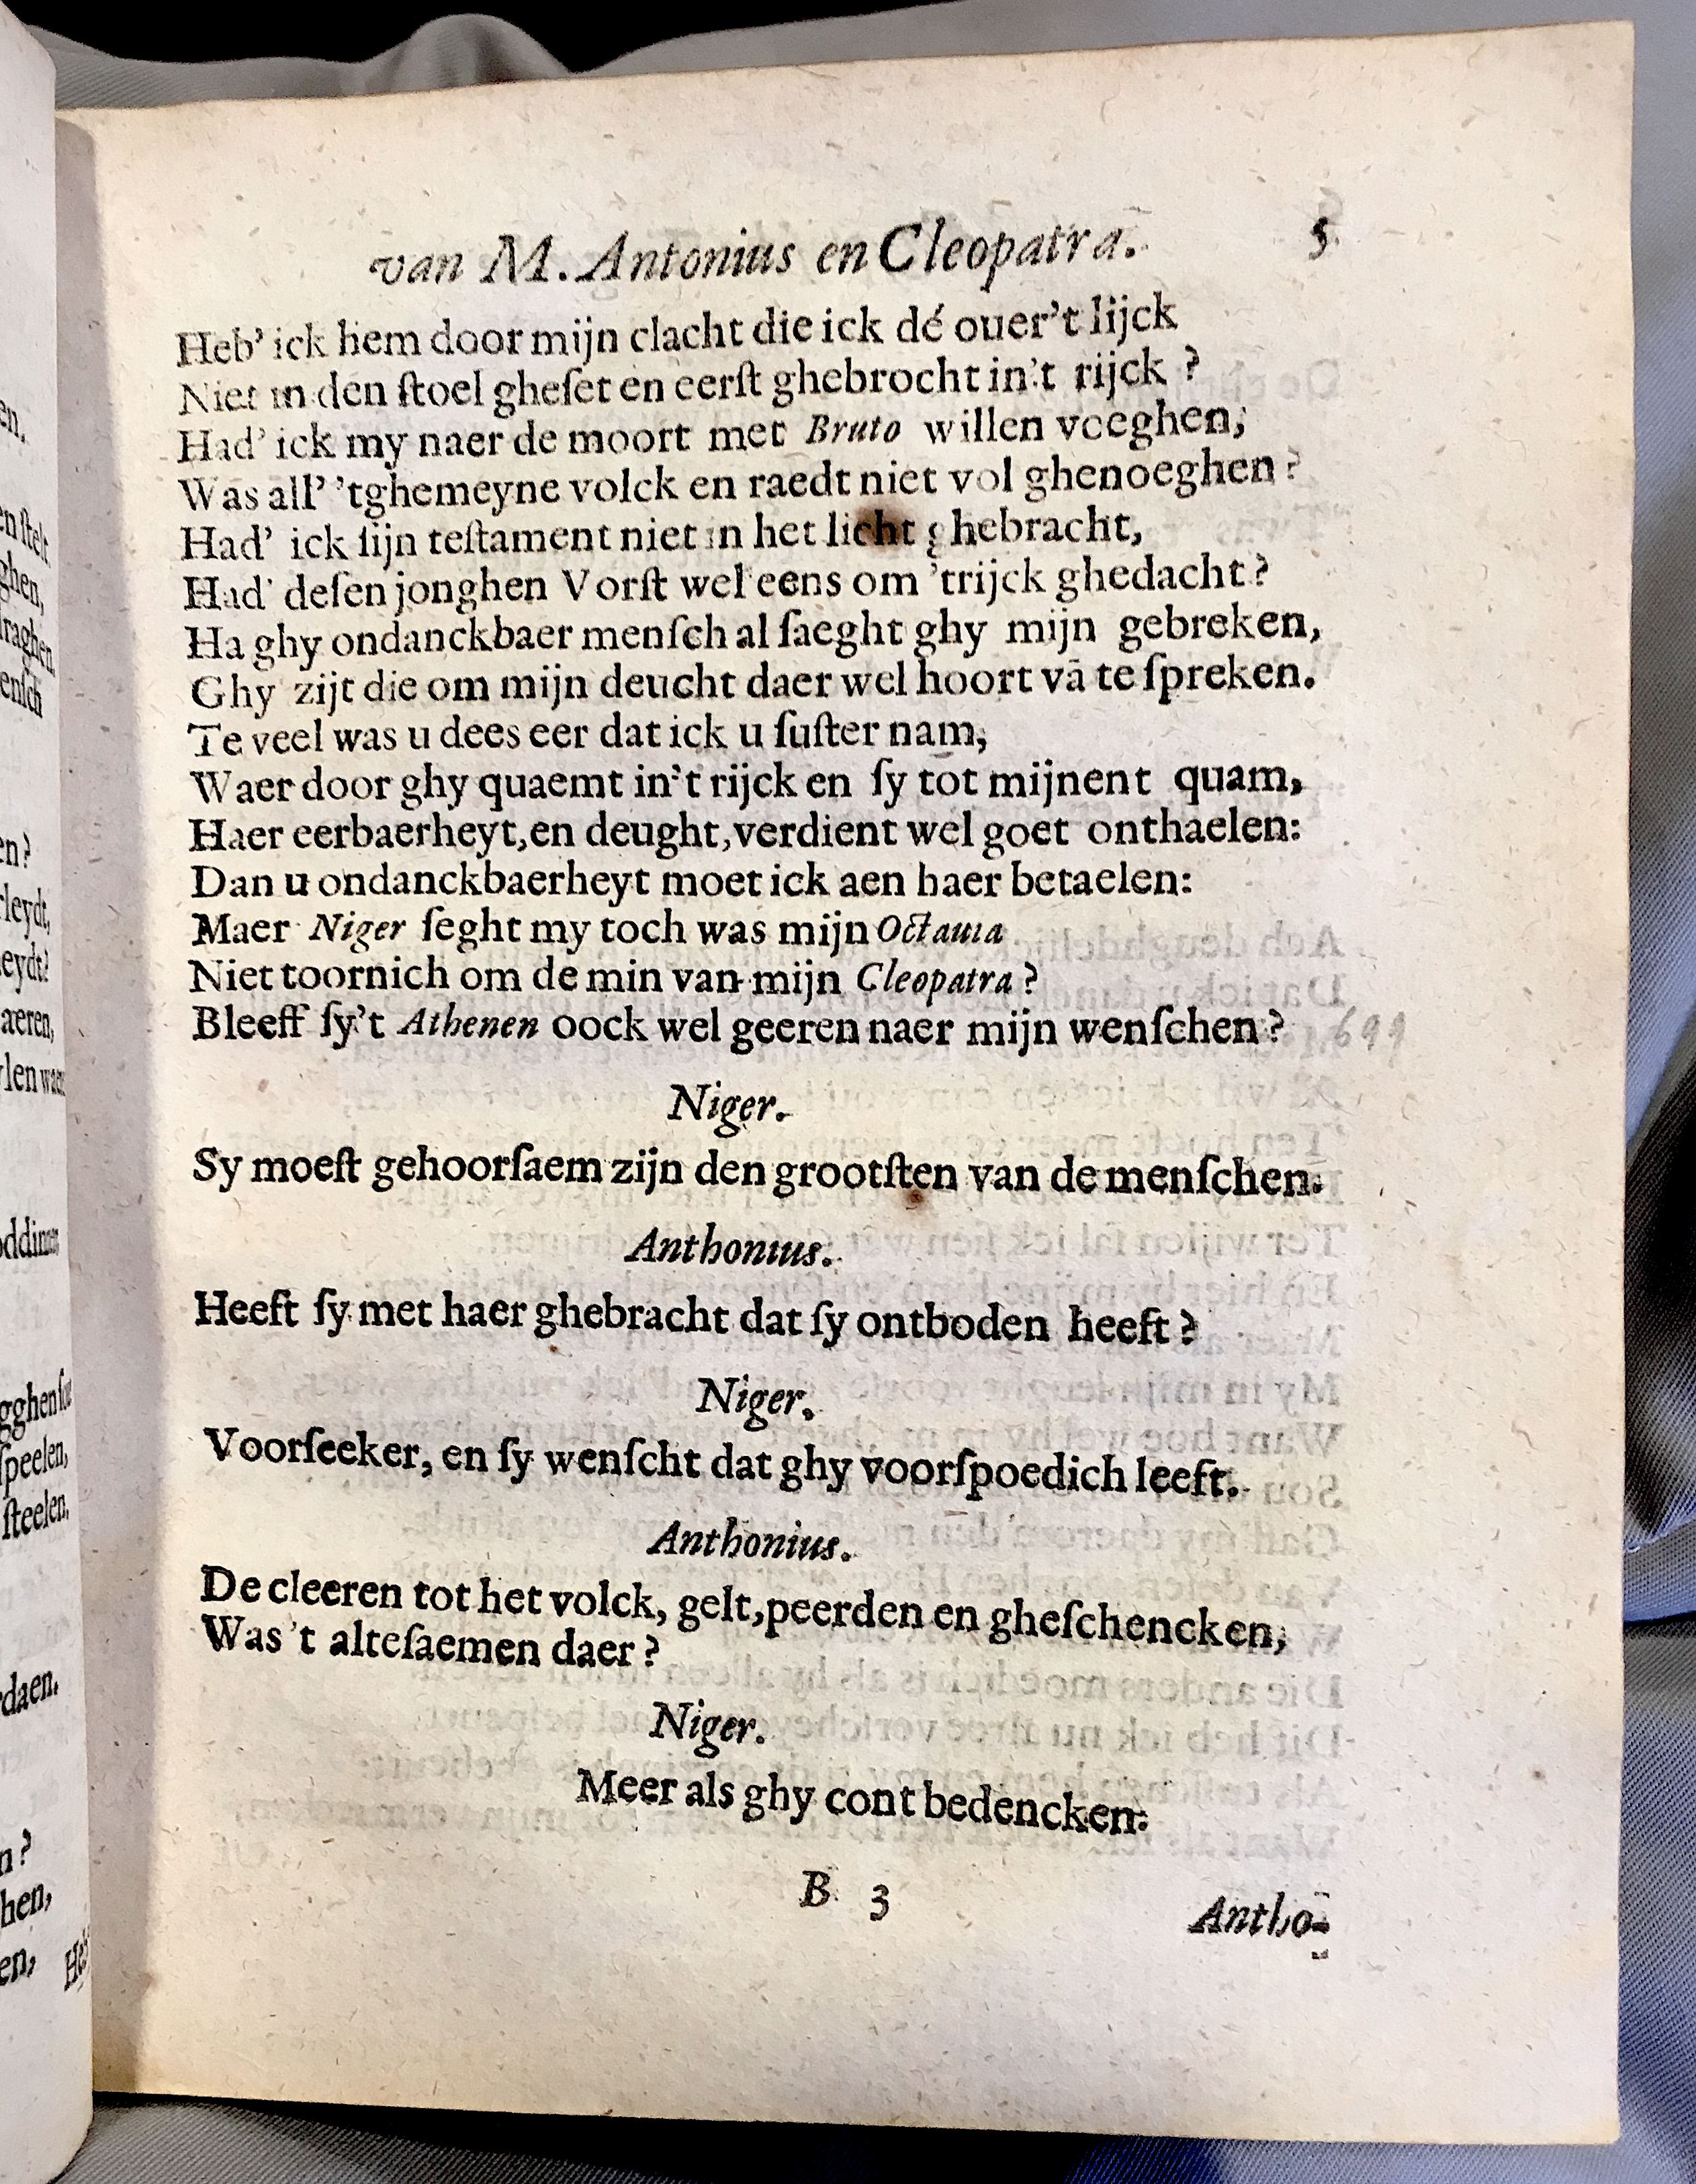 van M. Antonius en Cleopatra. 5
Heb' ick hem door mijn clacht die ick dé ouer't lijck
Niet in den ſtoel gheſet en eerſt ghebrocht in't rijck ?
Had' ick my naer de moort met Bruto willen voeghen,
Was all' 'tghemeyne volck en raedt niet vol ghenoeghen ?
Had' ick ſijn teſtament niet in het licht ghebracht,
Had' deſen jonghen Vorſt wel eens om 'trijck ghedacht ?
Ha ghy ondanckbaer menſch al ſaeght ghy mijn gebreken,
Ghy zijt die om mijn deucht daer wel hoort vã te ſpreken.
Te veel was u dees eer dat ick u ſuſter nam,
Waer door ghy quaemt in't rijck en ſy tot mijnent quam,
Haer eerbaerheyt, en deught, verdient wel goet onthaelen:
Dan u ondanckbaerheyt moet ick aen haer betaelen:
Maer Niger ſeght my toch was mijn Octauia
Niet toornich om de min van mijn Cleopatra ?
Bleeff ſy't Athenen oock wel geeren naer mijn wenſchen ? 699
Niger.
Sy moeſt gehoorſaem zijn den grootſten van de menſchen.
Anthonius.
Heeft ſy met haer ghebracht dat ſy ontboden heeft ?
Niger.
Voorſeeker, en ſy wenſcht dat ghy voorſpoedich leeft.
Anthonius.
De cleeren tot het volck, gelt, peerden en gheſchencken,
Was 't alteſaemen daer ?
Niger.
Meer als ghy cont bedencken.
B 3 Antho-